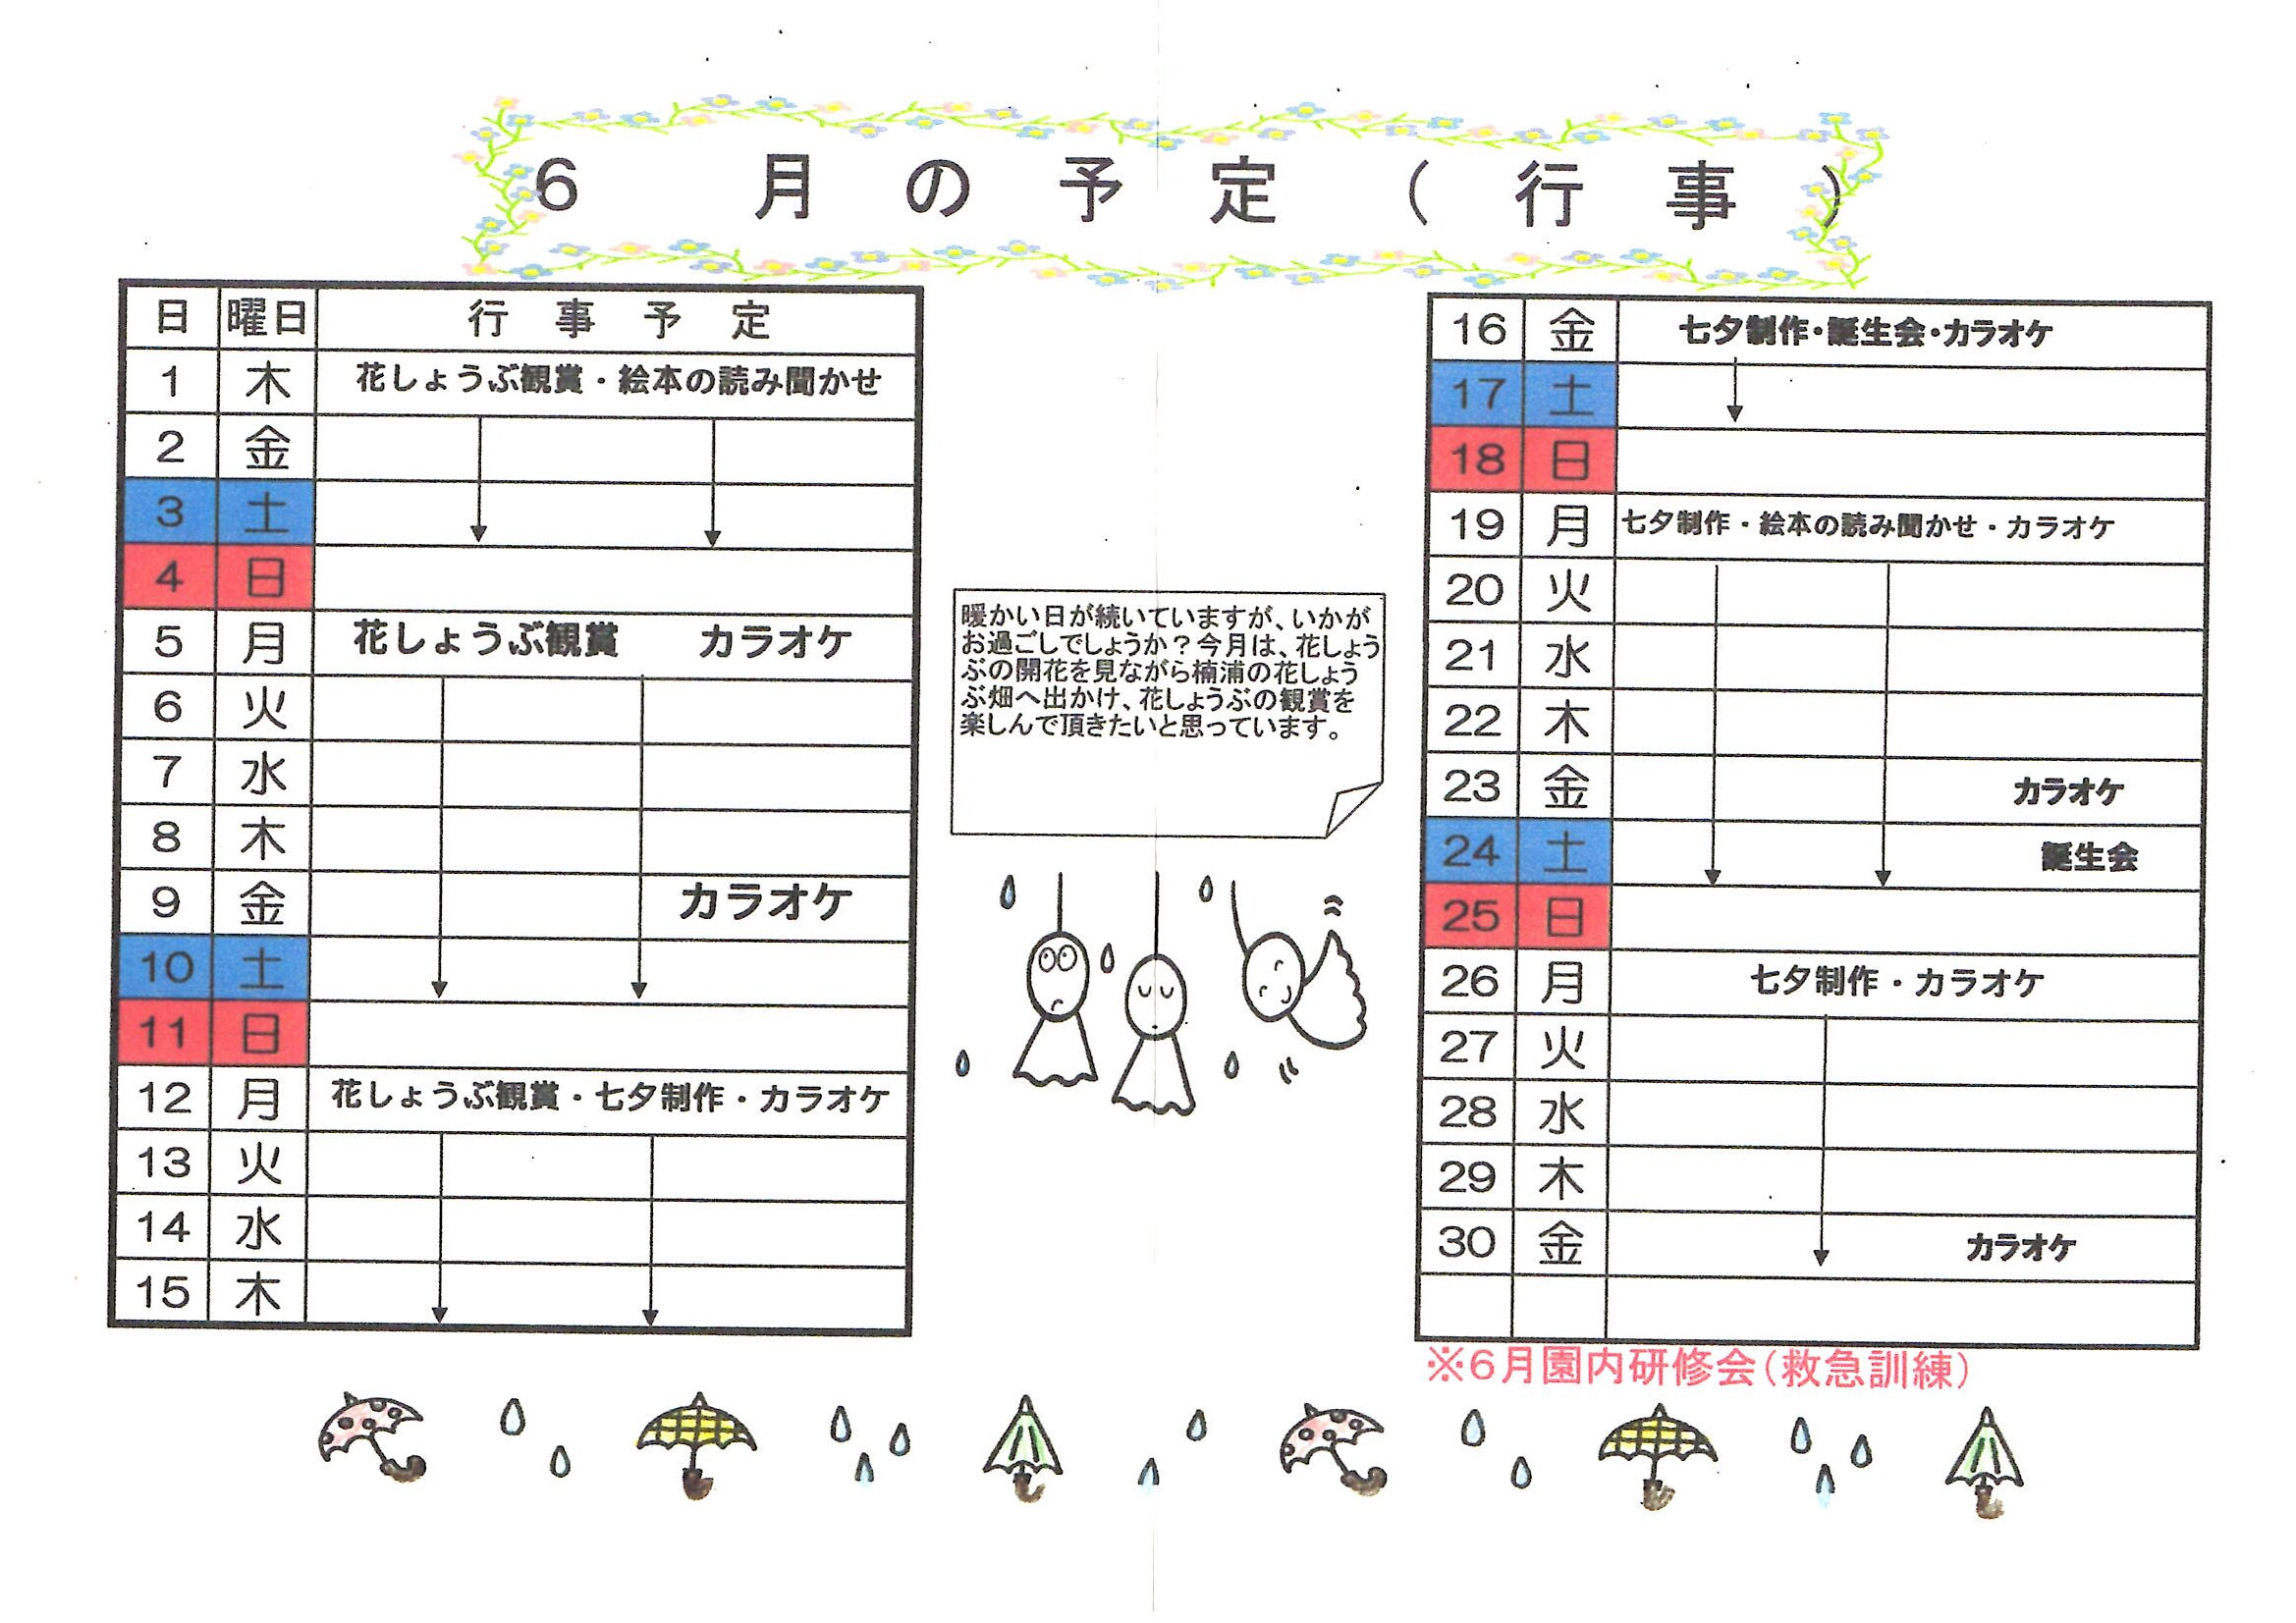 6月の予定(行事)
日 曜日 行事予定
1 木 花しょうぶ観賞・絵本の読み聞かせ
2 金
3 土
4 日
5 月 花しょうぶ観賞 カラオケ
6 火
7 水
8 木
9 金 カラオケ
10 土
11 日
12 月 花しょうぶ観賞・七夕制作・カラオケ
13 火
14 水
15 木
暖かい日が続いていますが、いかが
お過ごしでしょうか?今月は、花しょう
ぶの開花を見ながら楠浦の花しょう
ぶ畑へ出かけ、花しょうぶの観賞を
楽しんで頂きたいと思っています。
16 金 七夕制作・誕生会・カラオケ
17 土
18 日
19 月 七夕制作・絵本の読み聞かせ・カラオケ
20 火
21 水
22 木
23 金 カラオケ
24 土 誕生会
25 日
26 月 七夕制作・カラオケ
27 火
28 水
29 木
30 金 カラオケ
※6月園内研修会(救急訓練)